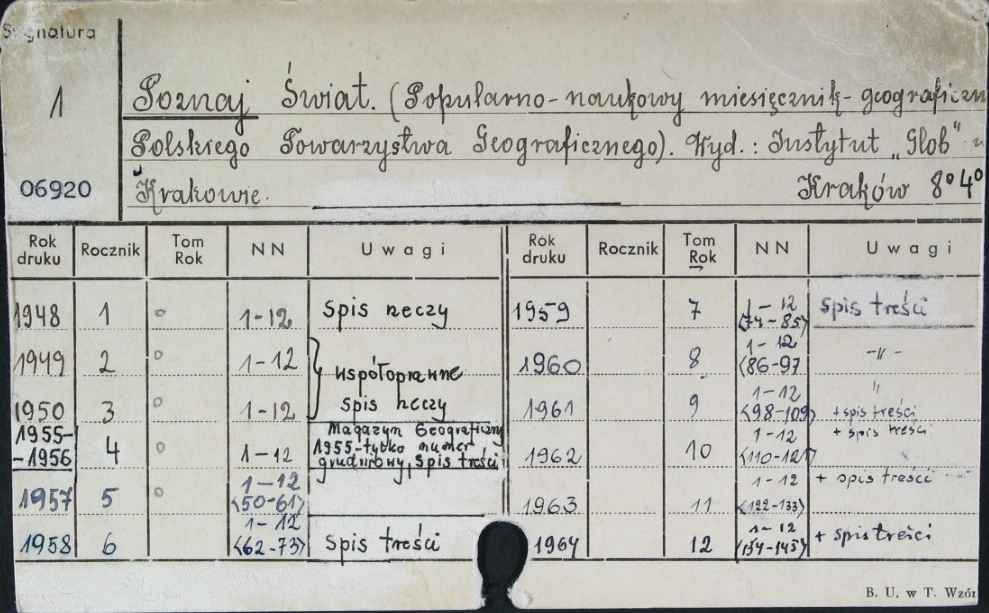 Sygnatura
1
Poznaj Świat. (Popularno-naukowy miesięcznik-geograficzn
Polskiego Towarzystwa Geograficznego). Wyd.: Instytut „Glob" w
06920
Krakowie. Kraków 8° 4°
Rok druku Rocznik Tom Rok NN Uwagi Rok druku Rocznik Tom Rok NN Uwagi
1948 1 ° 1-12 Spis rzeczy 1959 7 1-12 <74-85> spis treści
1949 2 ° 1-12 współoprawne 1960 8 1-12 <86-97 -"-
1950 3 ° 1-12 spis rzeczy 1961 9 1-12 <98-109> " + spis treści
1955-1956 4 ° 1-12 Magazyn Geograficzny 1955-tylko numer grudniowy, Spis treści 1962 10 1-12 <110-121> + spis treści
1957 5 ° 1-12 <50-61> 1963 11 1-12 <122-133> + spis treści
1958 6 1-12 <62-73> spis treści 1964 12 1-12 <134-145> + spis treści
B. U. w T. Wzór